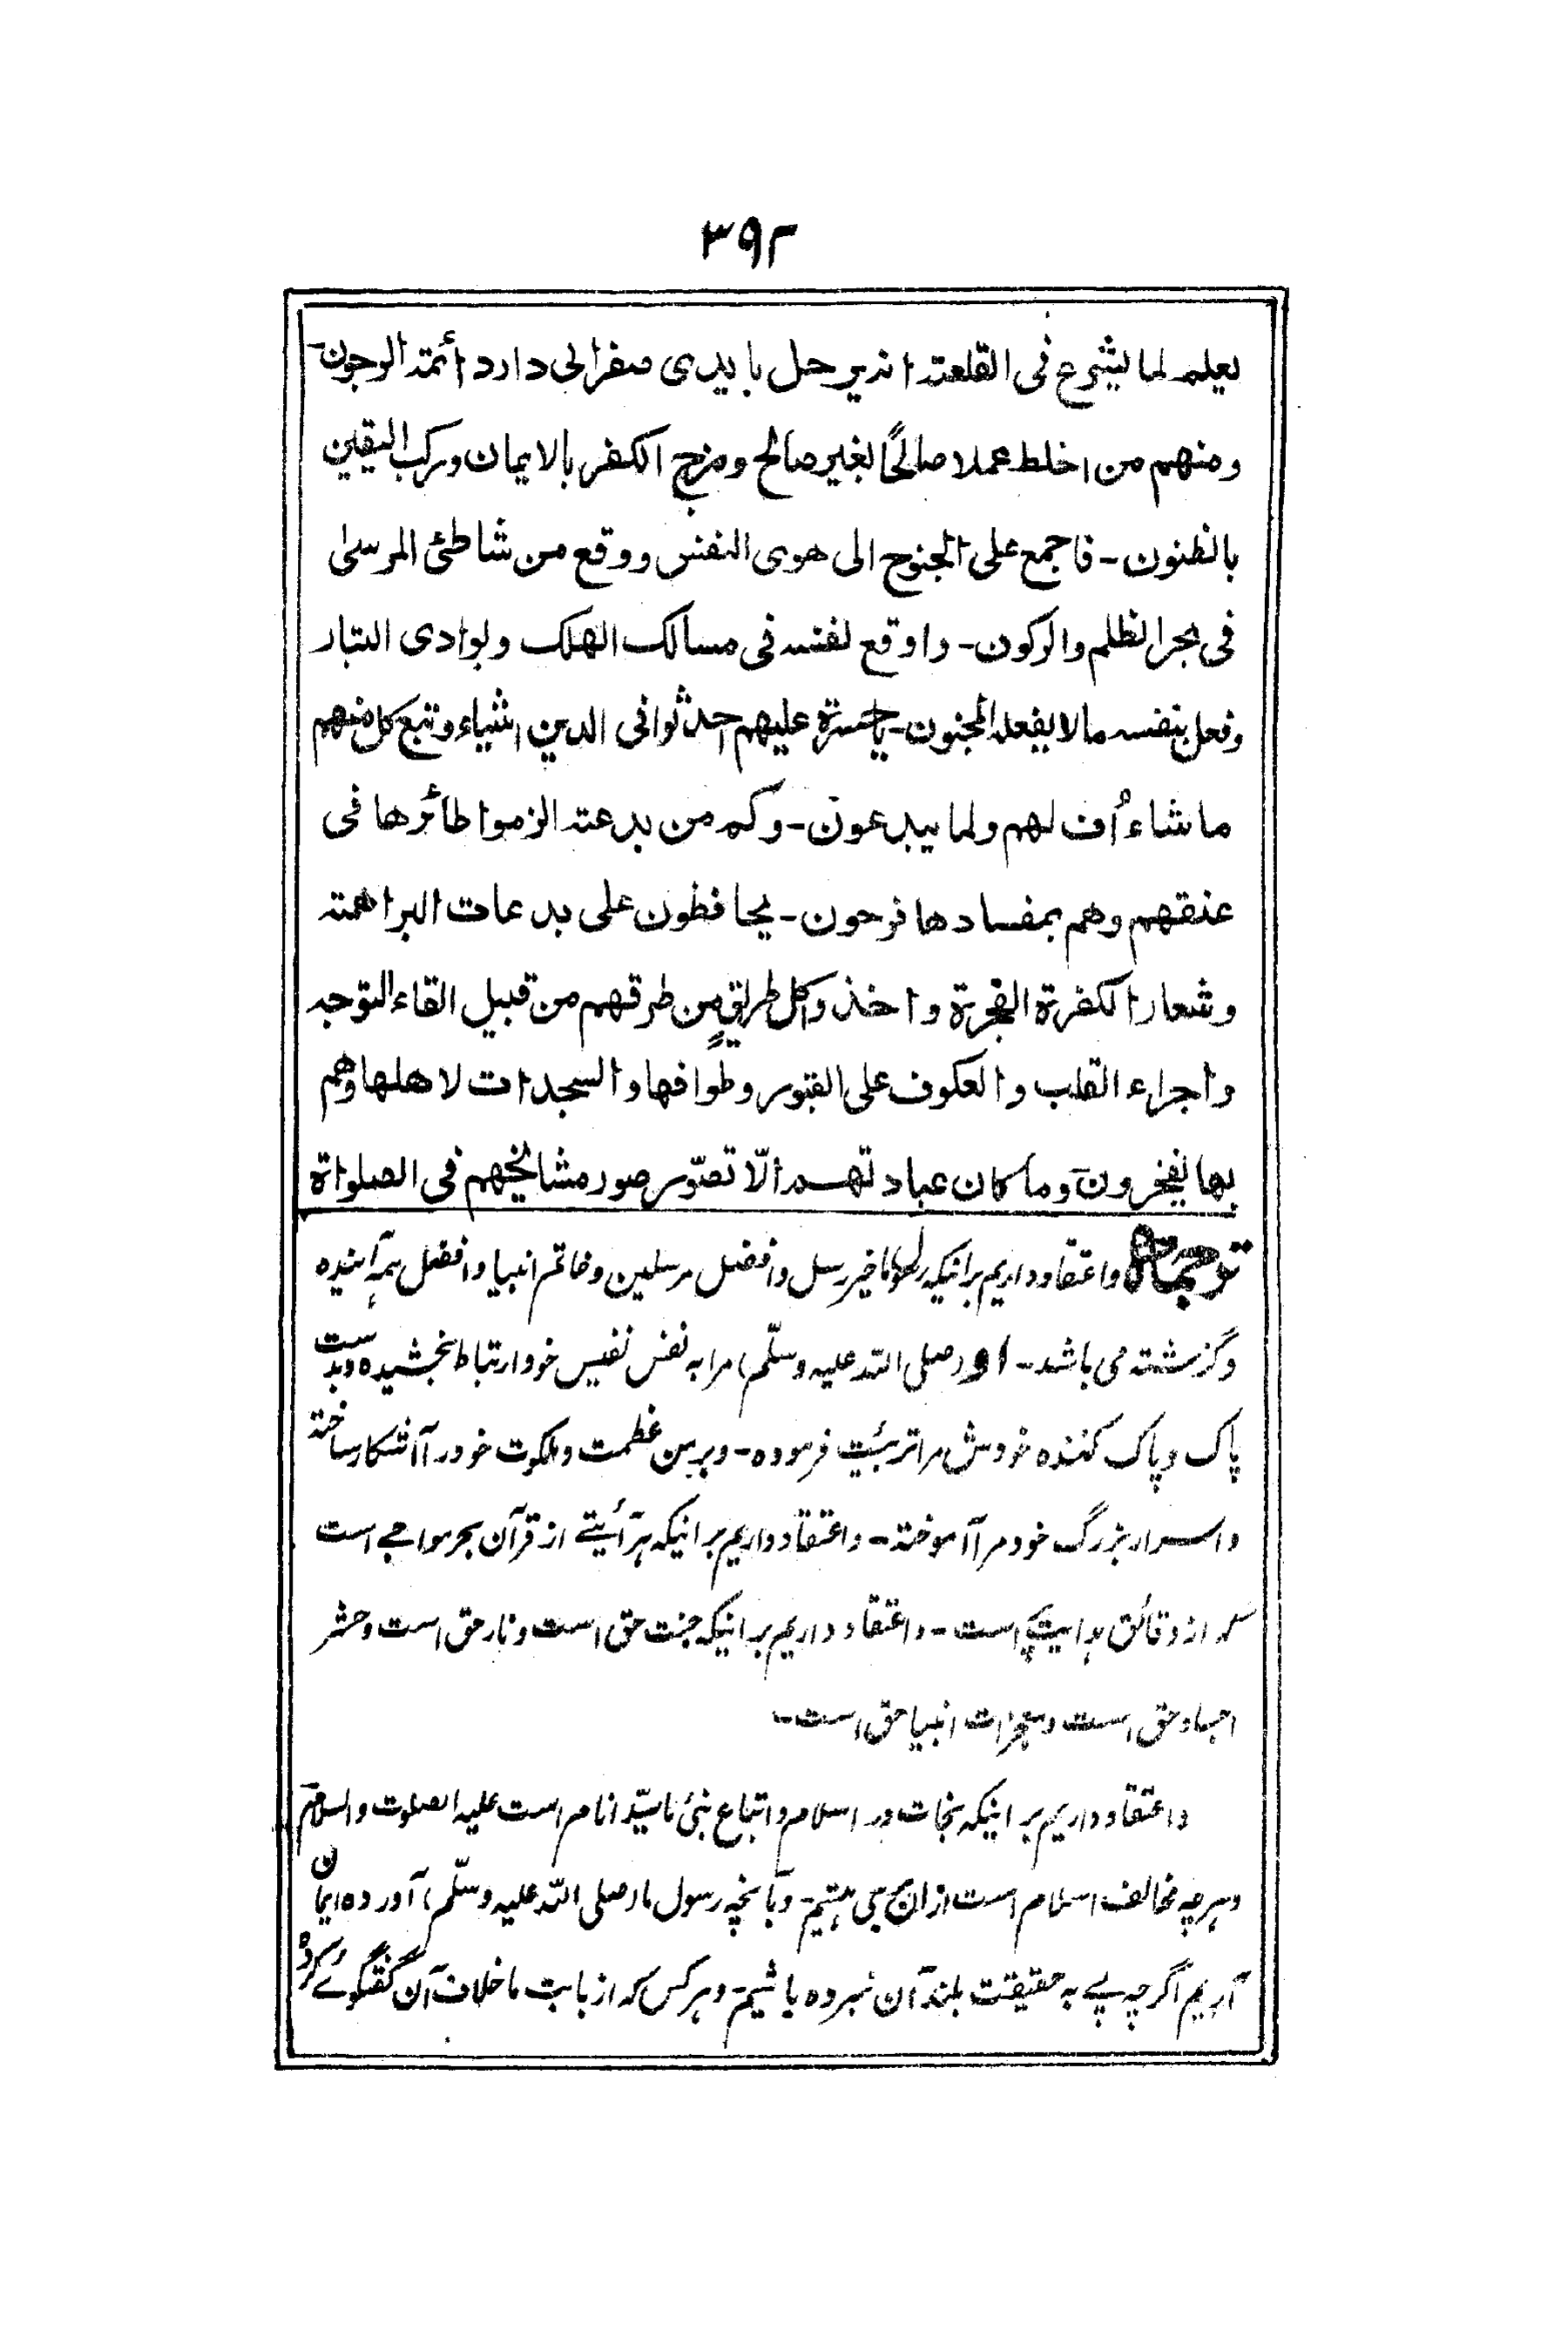 ۳۹۲
يعلم لما يشرع فى القلعة انه يرحل بايدى صفر الى دار دائمة الوجون
ومنهم من اخلط عملا صالحًا بغير صالح ومزج الكفر بالايمان وركب اليقين
بالظنون - فاجمع على الجنوح الى هوى النفس ووقع من شاطئ المرسىٰ
فى بحر الظلم والركون - واوقع نفسه فى مسالك الهلك وبوادى التبار
وفعل بنفسه مالا يفعله المجنون - ياحسرة عليهم احدثوا فى الدين اشياء وتبع كل منهم
ما شاء اُف لهم ولما يبدعون - وكم من بدعة الزموا طائرها فى
عنقهم وهم بمفسادها فرحون - يحافظون على بدعات البراهمة
وشعار الكفرة الفجرة واخذوا كل طريقٍ من طرقهم من قبيل القاء التوجه
واجراء القلب والعكوف على القبور وطوافها والسجدات لاهلها وهم
بها يفخرون وما كان عبادتهم الّا تصوّر صور مشائخهم فى الصلواة
ترجمة واعتقاد داریم برانیکه رسول ما خیر رسل وافضل مرسلین و خاتم انبیا وافضل ہمہ آینده
وگزشته می باشد - او (صلی الله علیہ وسلّم) مرا به نفس نفیس خود ارتباط بخشیده وبدست
پاک وپاک کننده خودش مرا تربیت فرموده - وبر من عظمت وملکوت خود را آشکار ساخته
واسرار بزرگ خود مرا آموخته - واعتقاد داریم برانیکه ہر آیتے از قرآن بحر مواجے است
که از دقائق ہدایت پر است - واعتقاد داریم بر انیکه جنت حق است و نار حق است وحشر
اجساد حق است ومعجزات انبیا حق است -
واعتقاد داریم بر اینکه نجات در اسلام واتباع نبئ ما سیّد انام است علیه الصلوت والسلام
وہرچه مخالف اسلام است ازان بری ہستیم - وبآنچه رسول ما (صلی الله علیه وسلّم) آورده ایمان
آریم اگرچه پے به حقیقت بلند آن نبرده باشیم - وہر کس که از بابت ما خلاف آن گفتگوئے کرده